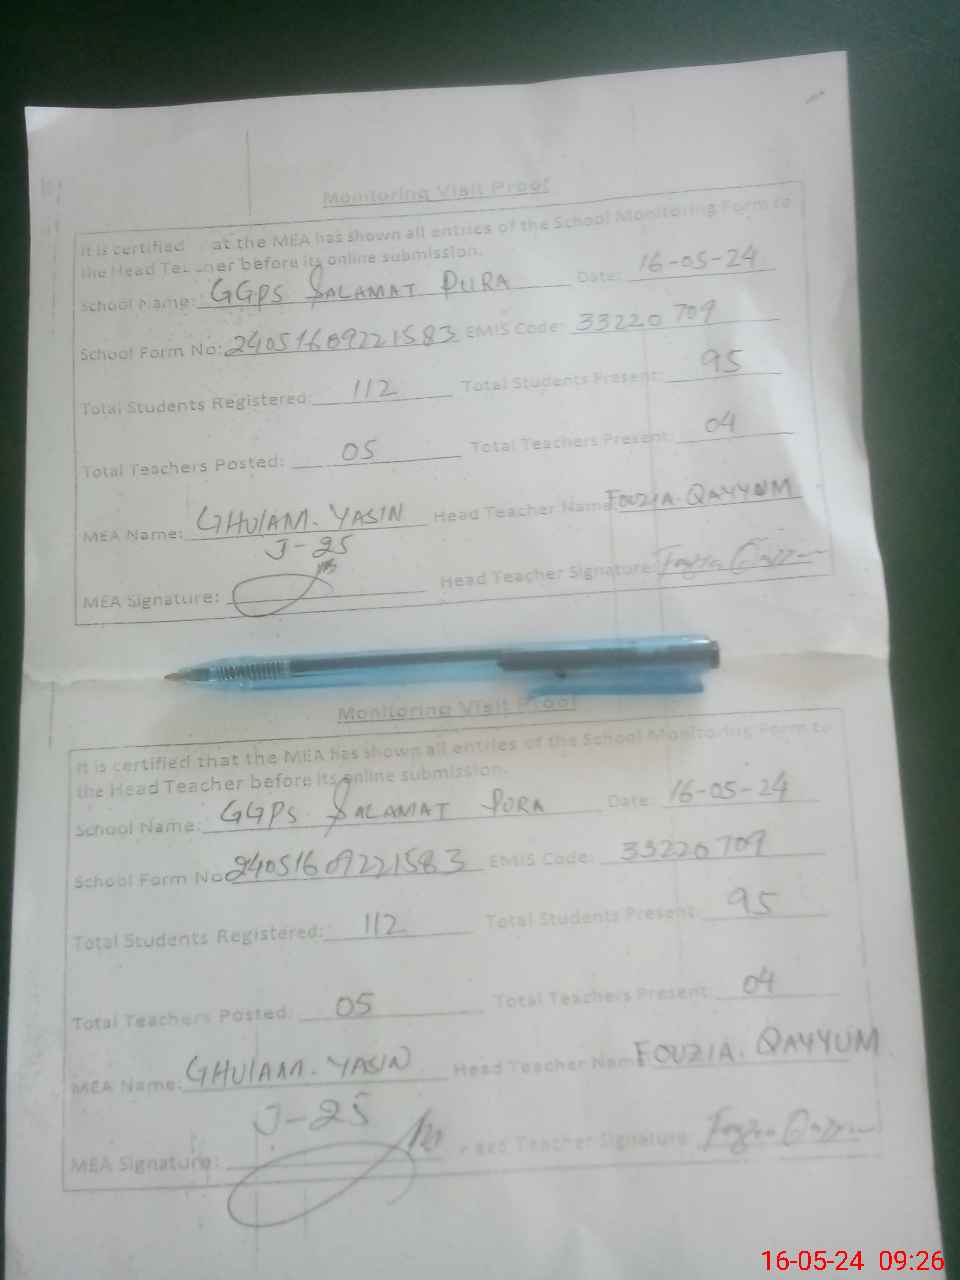 Monitoring Visit Proof
It is certified at the MEA has shown all entries of the School Monitoring Form to
the Head Teacher before its online submission.
School Name: GGPS SALAMAT PURA Date: 16-05-24
School Form No: 24051609221583 EMIS Code: 33220709
Total Students Registered: 112 Total Students Present: 95
Total Teachers Posted: 05 Total Teachers Present: 04
MEA Name: GHULAM. YASIN Head Teacher Name FOUZIA. QAYYUM
J-25
MEA Signature: Head Teacher Signature
Monitoring Visit Proof
It is certified that the MEA has shown all entries of the School Monitoring Form to
the Head Teacher before its online submission.
School Name: GGPS. SALAMAT PURA Date: 16-05-24
School Form No 24051609221583 EMIS Code: 33220709
Total Students Registered: 112 Total Students Present: 95
Total Teachers Posted: 05 Total Teachers Present: 04
MEA Name: GHULAM. YASIN Head Teacher Nam FOUZIA. QAYYUM
J-25
MEA Signature: Head Teacher Signature
16-05-24 09:26